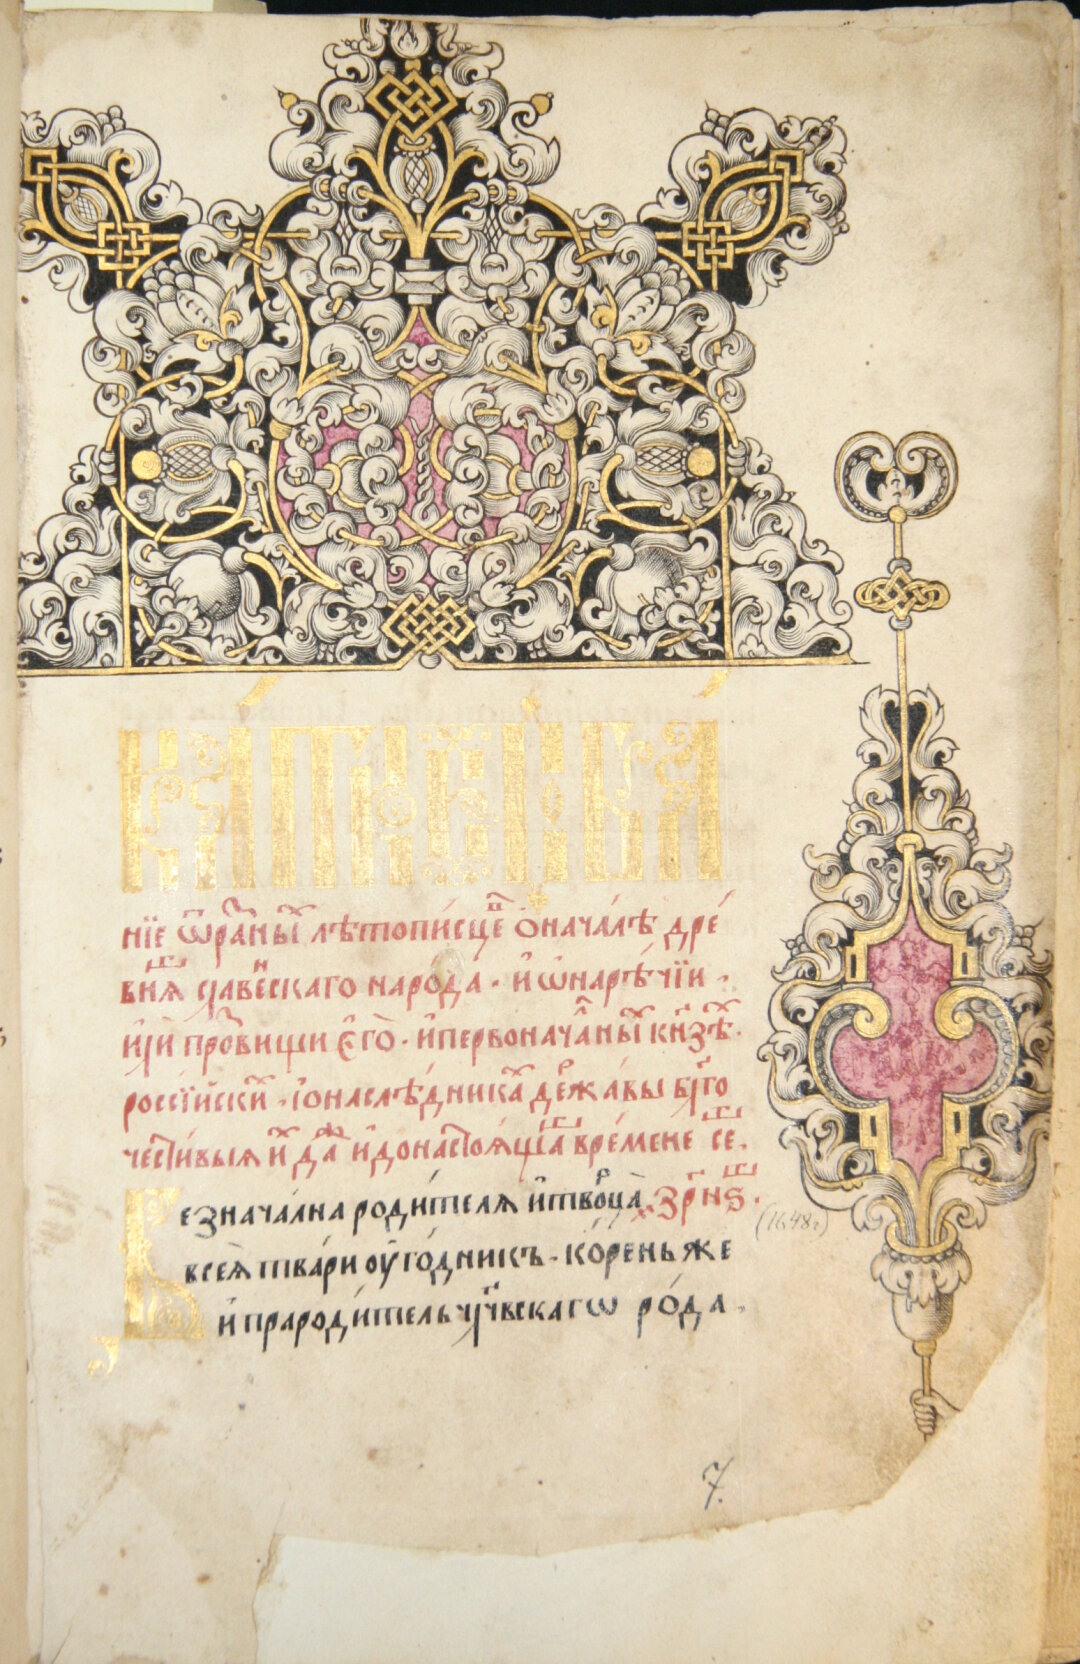 Кра́ткое ѡписа́
нїе ѿ ра́зныⷯ лѣтопи́сцеⷡ҇ ѡ нача́лѣ дре́
внѧⷢ҇ славе́нскаго наро́да · и҆ ѡ наре́чїи ·
и҆ и҆ про́звищи є҆го̀ · и҆ первонача́лныⷯ кн҃зѣⷯ ·
россїи҆скиⷯ · и҆ о҆ наслѣ́дникаⷯ держа́вы бл҃го
чести́выѧ и҆ⷯ да́ и҆ до настоѧ́щаⷢ҇ вре́мене сеⷢ҇ ·
Безнача́лна роди́телѧ и҆ творца̀ ҂зр҃нѕ ·
всеѧ̀ тва́ри оу҆го́дникъ · ко́рень же
и҆ прароди́тель црⷭ҇вскагѡ ро́да ·
(1648 г)
7.